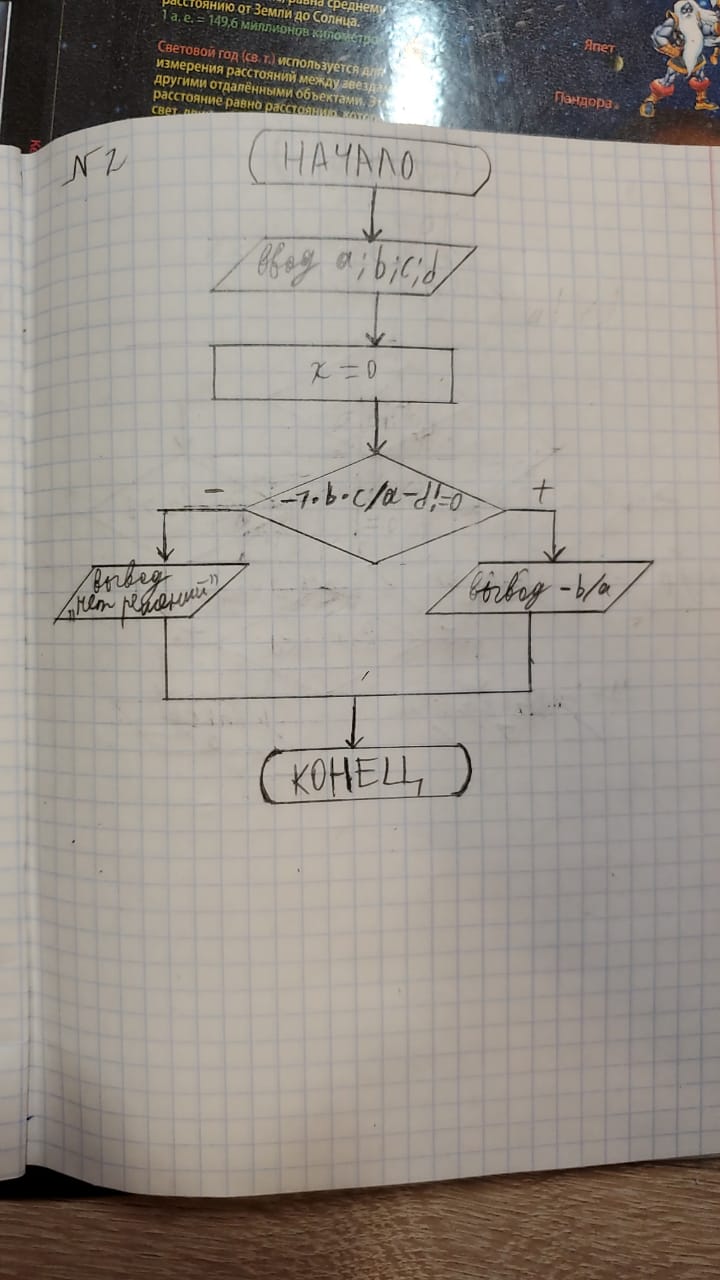 равна среднему
расстоянию от Земли до Солнца.
1 а.е. = 149,6 миллионов километро
Световой год (св. г.) используется для
измерения расстояний между звездам
другими отдалёнными объектами. Эт
расстояние равно расстоянию, котор
свет
Япет
Пандора
N2
НАЧАЛО
ввод a;b;c;d
x=0
-1·b·c/a-d!=0
-
+
вывод
"нет решений"
вывод -b/a
КОНЕЦ